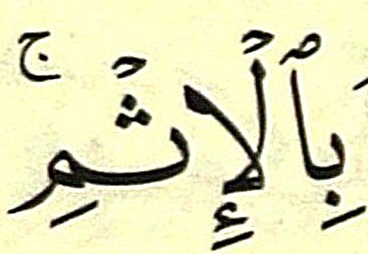 بِٱلۡإِثۡمِۚ